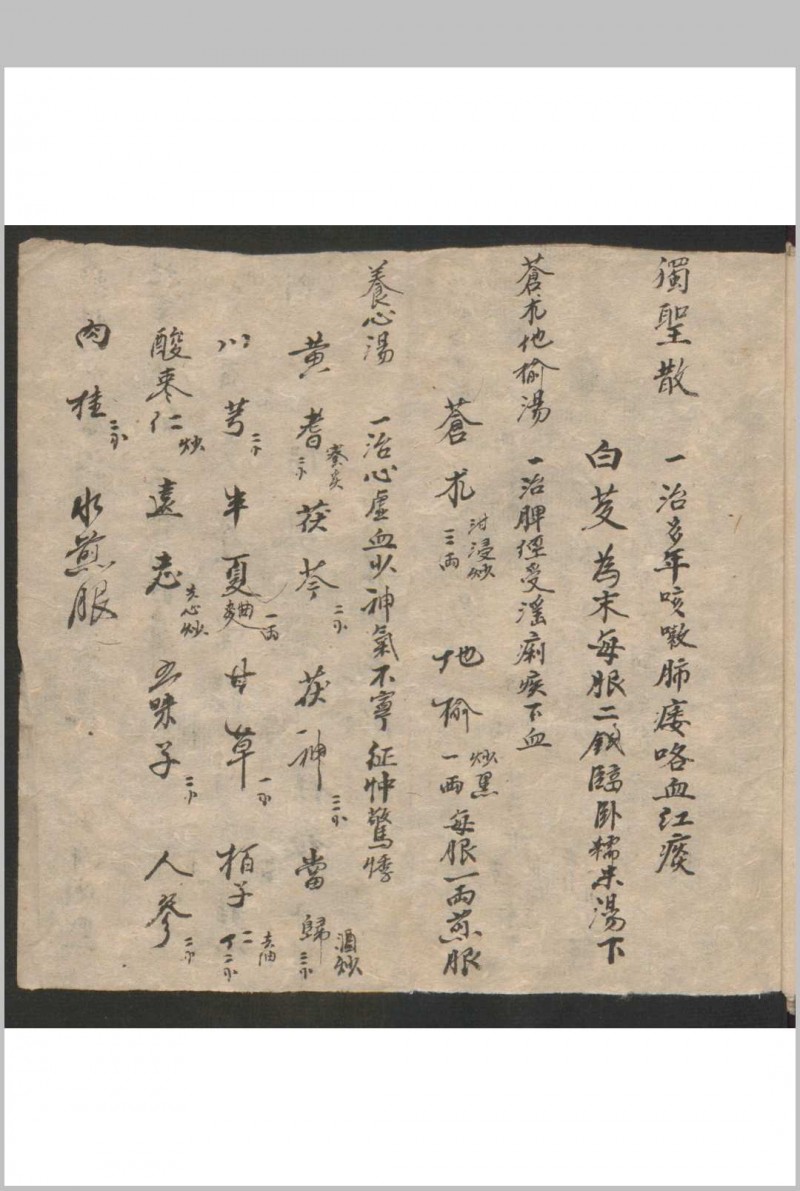 獨聖散 一治多年咳嗽肺痿咯血紅痰
白芨為末每服二錢臨卧糯米湯下
蒼朮地榆湯 一治脾經受溼痢疾下血
蒼朮泔浸炒三兩 地榆炒黑一兩 每服一兩煎服
養心湯 一治心虛血少神氣不寧怔忡驚悸
黃耆蜜炙三分 茯苓二分 茯神三分 當歸酒炒三分
川芎二分 半夏麯一兩 甘草一分 栢子仁去油二分
酸枣仁炒 遠志去心炒 五味子二分 人參二分
肉桂二分 水煎服